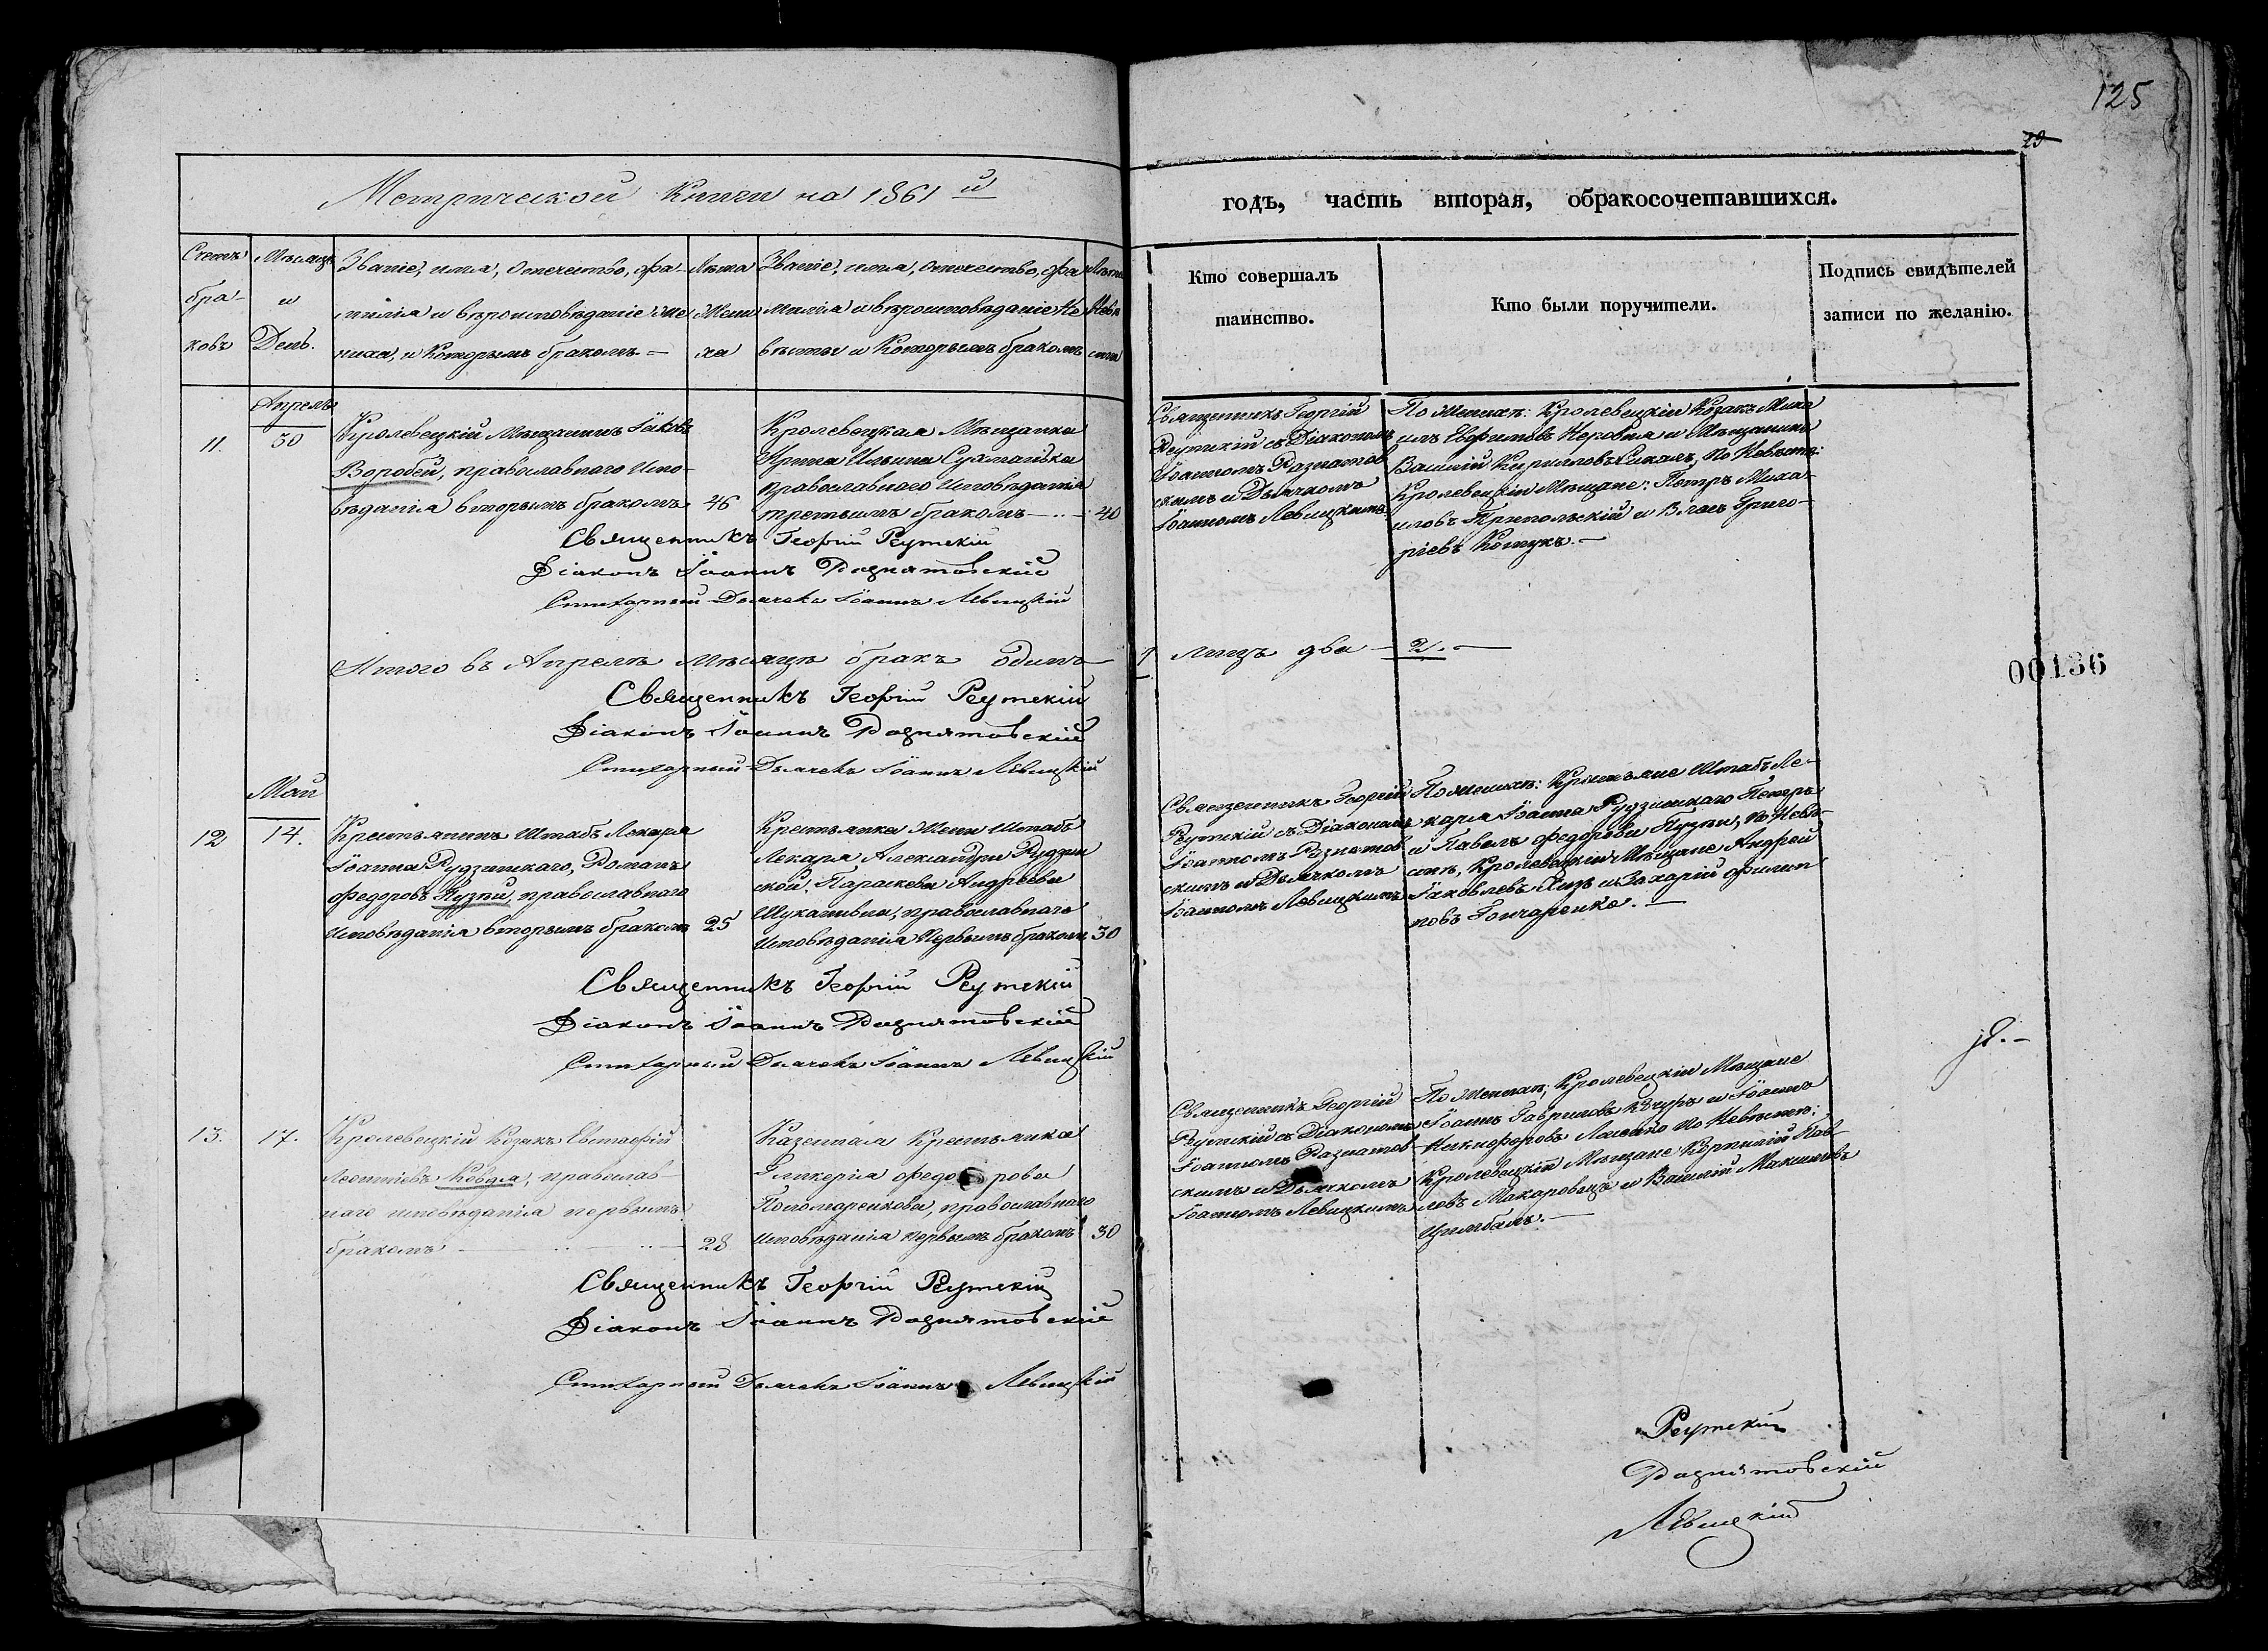 125
29
Метрической Книги на 1861й
годъ, часть вторая, обракосочетавшихся.
Счетъ бра-ковъ
Мѣсяцъ и День.
Званіе, имя, Отечество, фа-
милія и вѣроисповѣданіе Же
ниха, и Которымъ бракомъ. —
Лѣта Жени ха
Званіе, имя, Отечество, фа
милія и вѣроисповѣданіе Не
вѣсты и Которымъ бракомъ
Лѣта Невѣ сты
Кто совершалъ
таинство.
Кто были поручители.
Подпись свидѣтелей
записи по желанію.
Апрель
11.
30
Кролевецкій Мѣщанинъ Іаковъ
Воробей, православнаго Испо-
вѣданія вторымъ бракомъ
46
Кролевецкая Мѣщанка
Ирина Ильина
православнаго Исповѣданія
третьимъ бракомъ — .. —
40
Священникъ Георгій
Реутскій съ Діакономъ
Іоанномъ Рознатов
скимъ и Дьячкомъ
Іоанномъ Левицкимъ.
По Женихѣ: Кролевецкіи Козакъ Миха
илъ Евфимовъ и Мѣщанинъ
Василій Кирилловъ по Невѣстѣ:
Кролевецкіи Мѣщане: Петръ Миха-
иловъ Трипольскій и Власъ Григо-
ріевъ —
Священникъ Георгій Реутскій
Діаконъ Іоаннъ Рознатовскій
Стихарный Дьячекъ Іоаннъ Левицкій
Итого въ Апрелѣ Мѣсяцѣ бракъ Одинъ — 1 лицъ два — 2. —
Священникъ Георгій Реутскій
Діаконъ Іоаннъ Рознатовскій
Стихарный Дьячекъ Іоаннъ Левицкій
00136
Май
12
14.
Крестьянинъ Штабъ Лекаря
Іоанна Рудзинскаго, Романъ
Федоровъ Пузпи, православнаго
Исповѣданія вторымъ бракомъ
25
Крестьянка Жени Штабъ
Лекаря Александри Рудзин
ской, Параскева Андреева
православнаго
Исповѣданія Первымъ бракомъ
30
Священникъ Георгій
Реутскій съ Діакономъ
Іоанномъ Рознатов
скимъ и Дьячкомъ
Іоанномъ Левицкимъ
По Женихѣ: Крестьяне Штабъ Ле-
каря Іоанна Рудзинскаго Петръ
и Павелъ Федорови Пузпи, по Невѣ-
стѣ, Кролевецкіи Мѣщане Андрей
Іаковлевъ и Захарій Филип
повъ Гончаренко. —
Священникъ Георгій Реутскій
Діаконъ Іоаннъ Рознатовскій
Стихарный Дьячекъ Іоаннъ Левицкій
13.
17.
Кролевецкій Козакъ Евстафій
Леонтіевъ Ковдя, православ-
наго исповѣданія первымъ
бракомъ — .. — .. —
28
Казенная Крестьянка
Гликерія Федорова
Пономаренкова, православнаго
Исповѣданія первымъ бракомъ
30
Священникъ Георгій
Реутскій съ Діакономъ
Іоанномъ Рознатов
скимъ и Дьячкомъ
Іоанномъ Левицкимъ
По Женихѣ; Кролевецкіи Мѣщане
Іоаннъ Гавриловъ и Іоаннъ
Никифоровъ по Невѣстѣ:
Кролевецкіи Мѣщане: Корнилій Пав-
ловъ Макаровецъ и Василій Максимовъ
Цимбалъ. —
Священникъ Георгій Реутскій
Діаконъ Іоаннъ Рознатовскій
Стихарный Дьячекъ Іоаннъ Левицкій
Реутскій
Рознатовскій
Левицкій